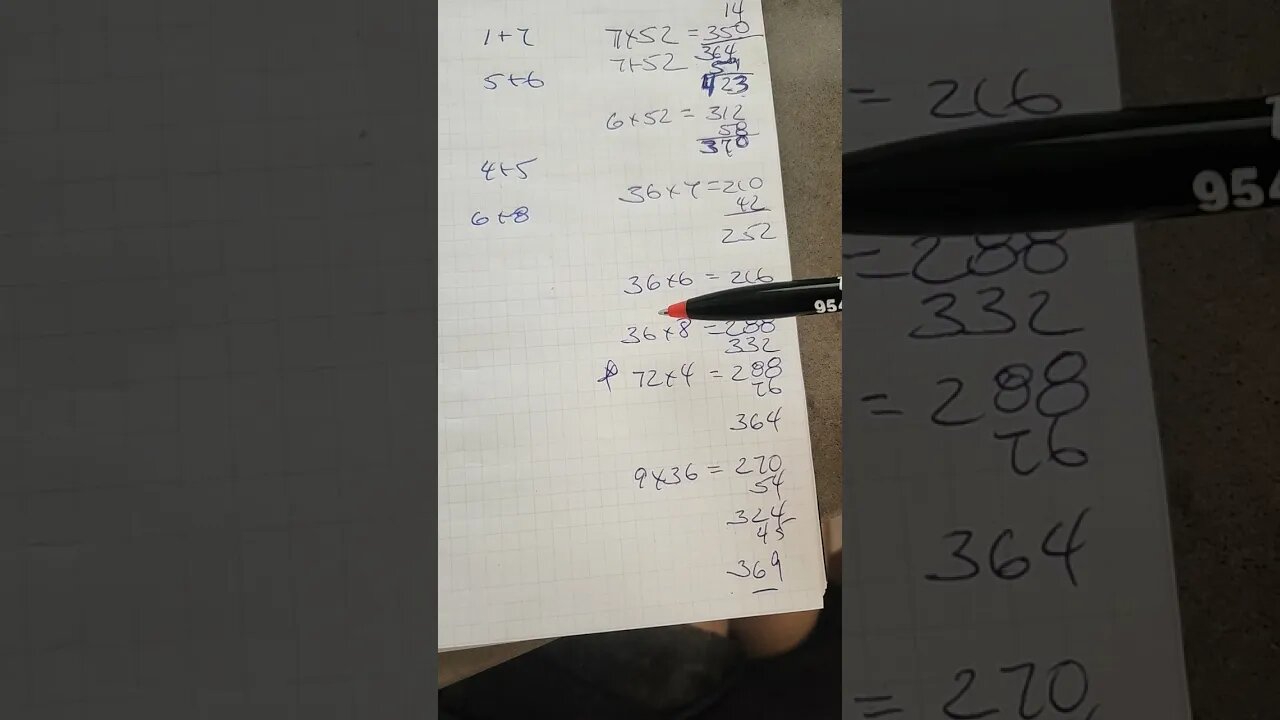 14
1+7 7x52 = 350
364
7+52 59
423
5+6
6x52 = 312
58
370
4+5
36x7 = 210
42
6+8
252
36x6 = 216
954
36x8 = 288
332
72x4 = 288
76
364
9x36 = 270
54
324
45
369
= 216
954
= 288
332
= 288
76
364
= 270